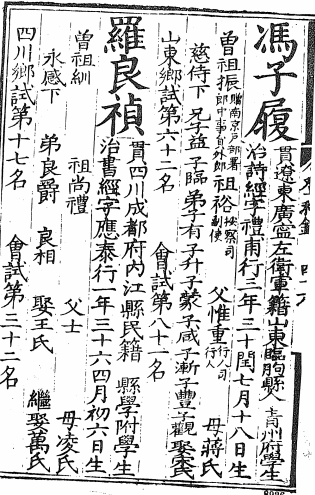 馮子履
貫遼東廣寧左衛軍籍山東臨朐縣人 青州府學生
治詩經字禮甫行三年三十閏七月十八日生
曾祖振 贈南京戶部署郎中事員外郎 祖裕 按察司副使 父惟重 行人司行人 母蔣氏
慈侍下 兄子益 子臨 弟子有 子升 子蒙 子咸 子漸 子豐 子觀 娶袁氏
山東鄉試第六十二名 會試第八十一名
羅良禎
貫四川成都府內江縣民籍 縣學附學生
治書經字應泰行一年三十六四月初六日生
曾祖紃 祖尚禮 父士 母凌氏
永感下 弟良爵 良相 娶王氏 繼娶萬氏
四川鄉試第十七名 會試第三十二名